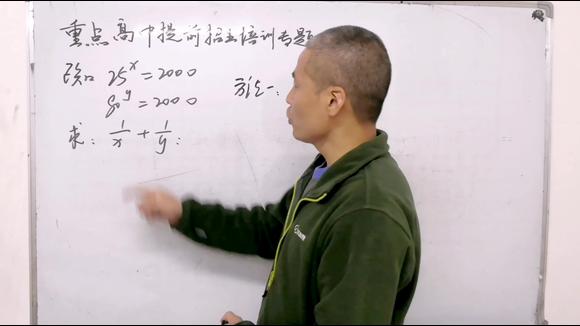 重点高中提前招生培训专题
已知 25ˣ = 2000
80ʸ = 2000
求: 1/x + 1/y:
方法一: